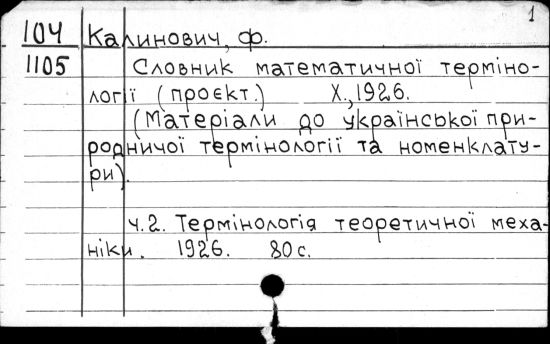 1
104 Калинович, ф.
1105 Словник математичної терміно-
логії (проєкт.) Х., 1926.
(Матеріали до української при-
родничої термінології та номенклату-
ри).
ч.2. Термінологія теоретичної меха-
ніки. 1926. 80 с.